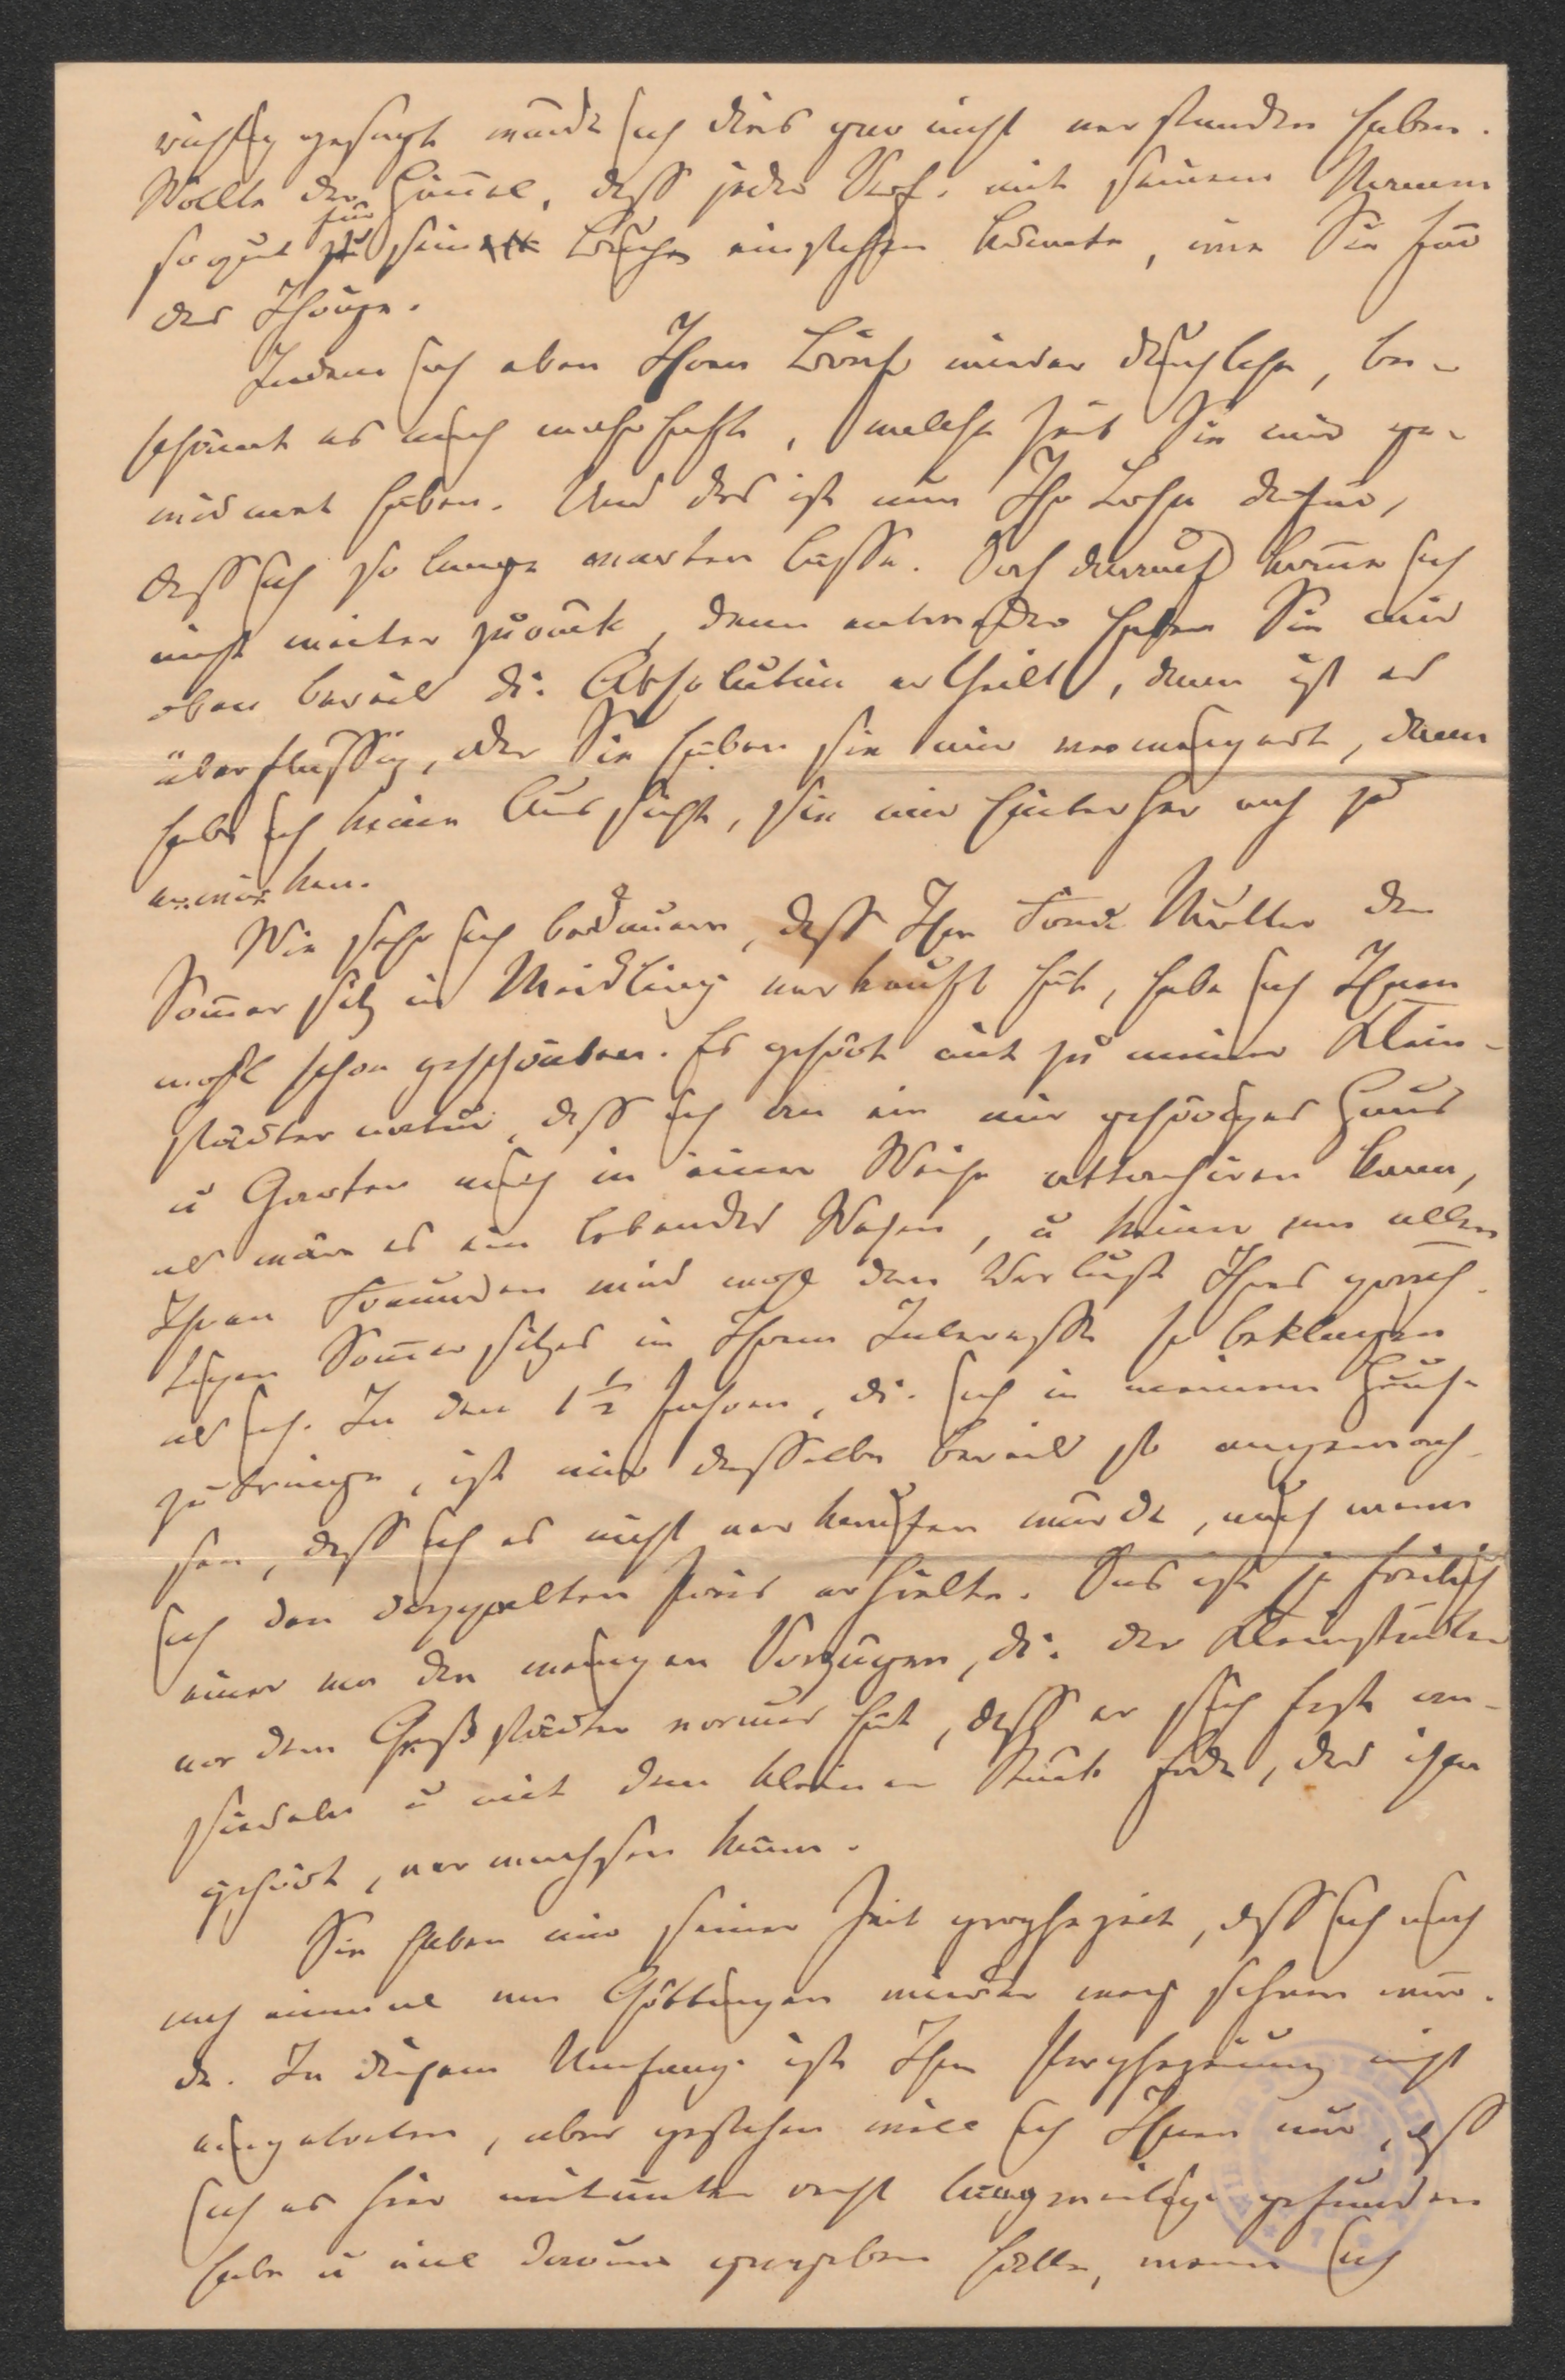 richtig gesagt würde ich dies gar nicht verstanden haben.
Wollte der Himmel, dass jeder Verf. mit seinem Namen
so gut für sein Buch einstehen könnte, wie Sie für
das Ihrige.
Indem ich eben Ihren Brief wieder durchlese, be-
schämt es mich wahrhaft, welche Zeit Sie mir ge-
widmet haben. Und das ist nun Ihr Lohn dafür,
dass ich so lange warten lasse. Doch darauf komme ich
nicht weiter zurück, denn entweder haben Sie mir
oben bereits die Absolution ertheilt, dann ist es
überflüssig, oder Sie haben sie mir verweigert, dann
habe ich keine Aussicht, sie mir hinterher noch zu
erwirken.
Wie sehr ich bedauere, dass Ihre Frau Mutter den
Sommersitz in Meidling verkauft hat, habe ich Ihnen
wohl schon geschrieben. Es gehört mit zu meiner Klein-
städternatur, dass ich an ein mir gehöriges Haus
u Garten mich in einer Weise attachiren kann,
als wäre es ein lebendes Wesen, u keiner von allen
Ihren Freunden wird wohl den Verlust Ihres präch-
tigen Sommersitzes in Ihrem Interesse so beklagen
als ich. In den 1½ Jahren, die ich in meinem Hause
zubringe, ist mir dasselbe bereits so angewach-
sen, dass ich es nicht verkaufen würde, auch wenn
ich den doppelten Preis erhielte. Das ist ja freilich
einer von den wenigen Vorzügen, die der Kleinstädter
vor dem Großstädter voraus hat, dass er sich fest an-
siedeln u mit dem kleinen Stück Erde, das ihm
gehört, verwachsen kann.
Sie haben mir seiner Zeit prophezeit, dass ich mich
noch einmal von Göttingen wieder weg sehnen wür-
de. In diesem Umfange ist Ihre Prophezeiung nicht
eingetreten, aber gestehen will ich Ihnen nur, dass
ich es hier mitunter recht langweilig gefunden
habe u viel darum gegeben hätte, wenn ich